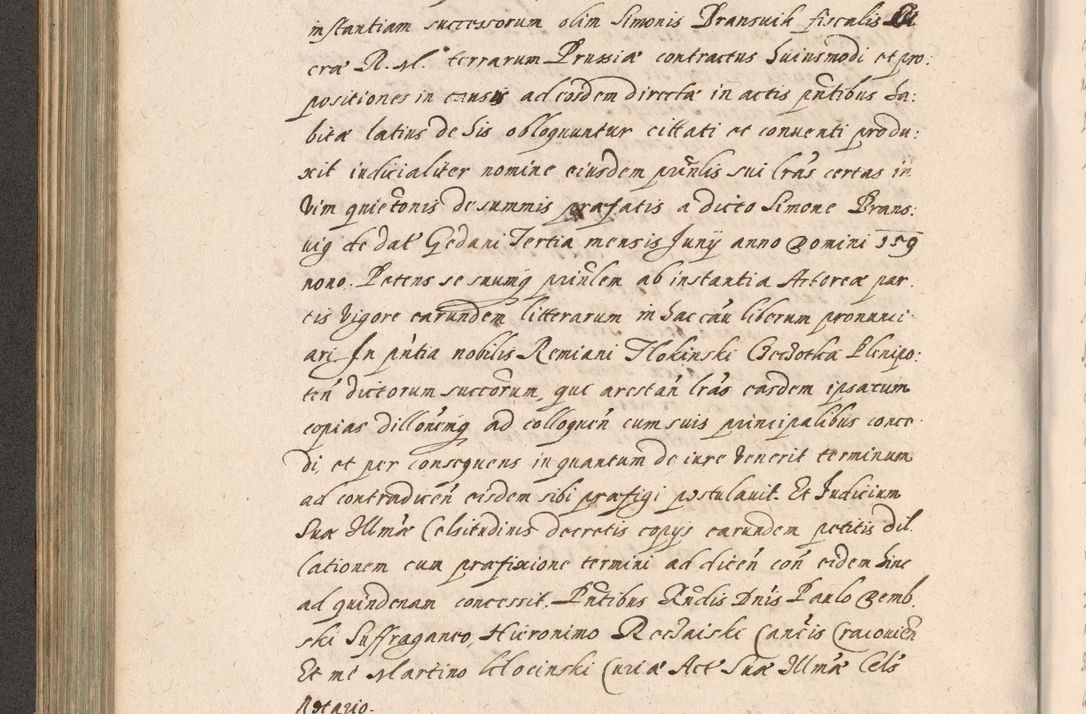 instantiam successorum olim Simonis Bransuik fiscalis Sa
cræ R. M. terrarum Prussiæ contractus huiusmodi et pro:
positiones in causis ad eosdem directæ in actis pñtibus ha:
bitæ latius de his obloquuntur cittati et conuenti produ:
xit iudicialiter nomine eiusdem prinlis sui lras certas in
Vim quietonis de summis præfatis a dicto Simone Brans:
uig de dat Gedani Tertia mensis Junij anno Domini 159
nono. Petens se suumq prinlem ab instantia Actoreæ par
tis Vigore earundem litterarum in hac cau liberum pronunci
ari. In pñtia nobilis Remiani Plenipo:
ten dictorum succorum, qui lras easdem ipsarum
copias dilloneq ad colloquen cum suis principalibus conce
di, et per consequens in quantum de iure Venerit terminum
ad contradicen eisdem sibi præfigi postulauit. Et Iudicium
Suæ Illmæ Celsitudinis decretis copijs earundem petitis dil
lationem cum præfixione termini ad dicen con eidem hinc
ad quindenam concessit. Pñtibus Rndis Dnis Paulo Demb
ski Suffraganeo, Hieronimo Cancis Cracouien
Et me Martino Curiæ Act Suæ Illmæ Cels
Notario.